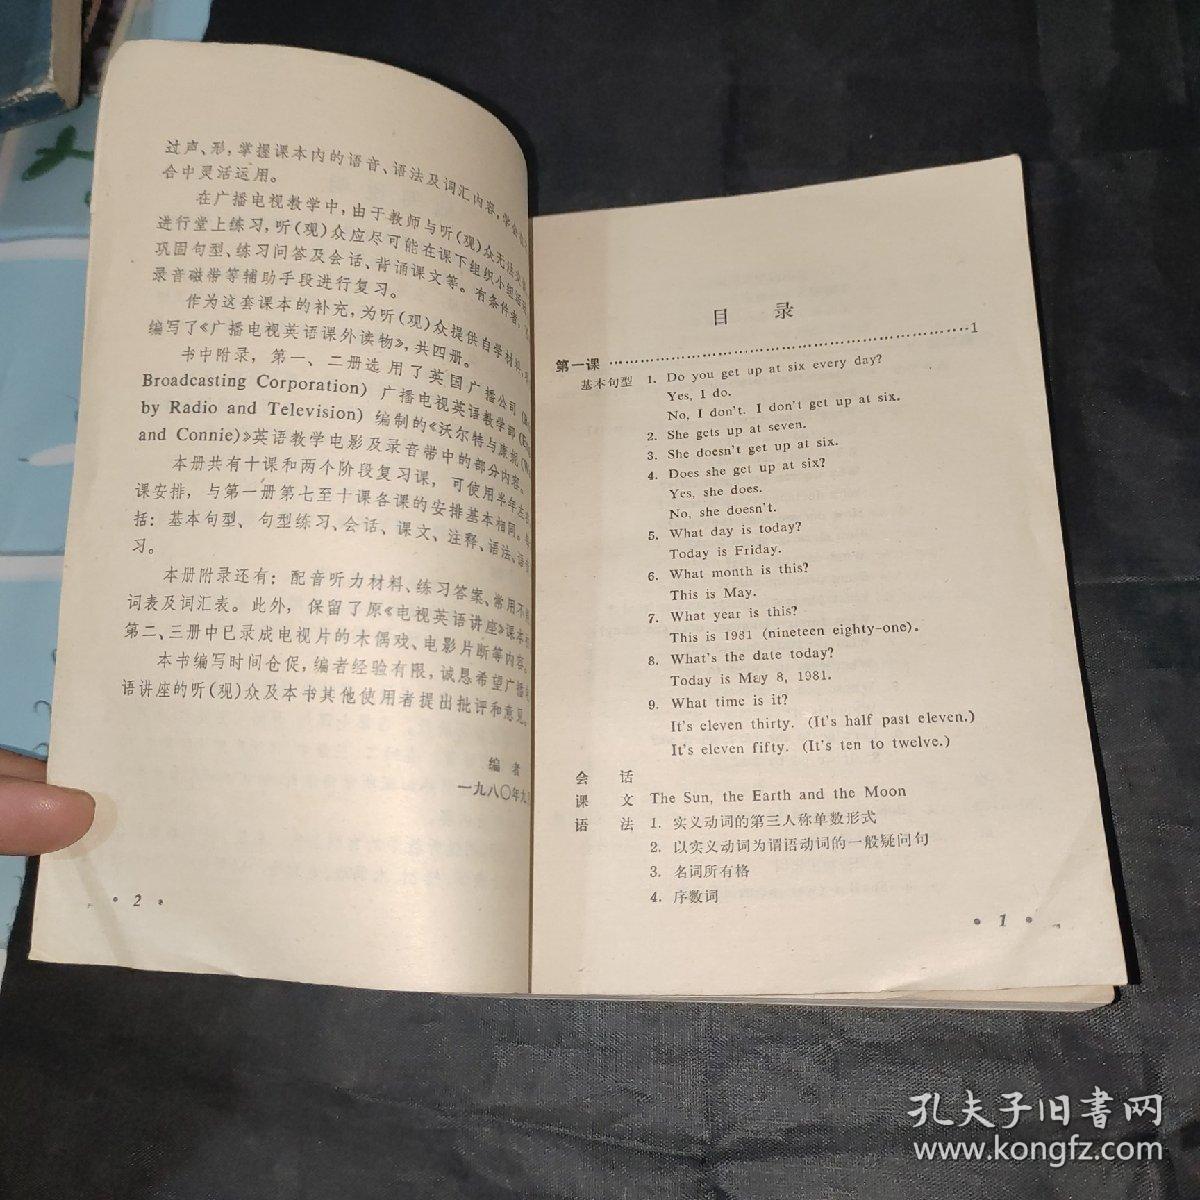 过声、形，掌握课本内的语音、语法及词汇内容，学会在
合中灵活运用。
在广播电视教学中，由于教师与听(观)众无法
进行堂上练习，听(观)众应尽可能在课下组织小组活动
巩固句型、练习问答及会话、背诵课文等。有条件者，
录音磁带等辅助手段进行复习。
作为这套课本的补充，为听(观)众提供自学材料，
编写了《广播电视英语课外读物》，共四册。
书中附录，第一、二册选用了英国广播公司(
Broadcasting Corporation) 广播电视英语教学部(
by Radio and Television) 编制的《沃尔特与康妮(
and Connie)》英语教学电影及录音带中的部分内容。
本册共有十课和两个阶段复习课，可使用半年左
课安排，与第一册第七至十课各课的安排基本相同。
括：基本句型、句型练习、会话、课文、注释、语法、语音
习。
本册附录还有：配音听力材料、练习答案、常用不
词表及词汇表。此外，保留了原《电视英语讲座》课本
第二、三册中已录成电视片的木偶戏、电影片断等内容。
本书编写时间仓促，编者经验有限，诚恳希望广播
语讲座的听(观)众及本书其他使用者提出批评和意见。
编者
一九八〇年九
• 2 •
目 录
第一课 ………………………………………………1
基本句型 1. Do you get up at six every day?
Yes, I do.
No, I don't. I don't get up at six.
2. She gets up at seven.
3. She doesn't get up at six.
4. Does she get up at six?
Yes, she does.
No, she doesn't.
5. What day is today?
Today is Friday.
6. What month is this?
This is May.
7. What year is this?
This is 1981 (nineteen eighty-one).
8. What's the date today?
Today is May 8, 1981.
9. What time is it?
It's eleven thirty. (It's half past eleven.)
It's eleven fifty. (It's ten to twelve.)
会 话
课 文 The Sun, the Earth and the Moon
语 法 1. 实义动词的第三人称单数形式
2. 以实义动词为谓语动词的一般疑问句
3. 名词所有格
4. 序数词
• 1 •
孔夫子旧書网
www.kongfz.com